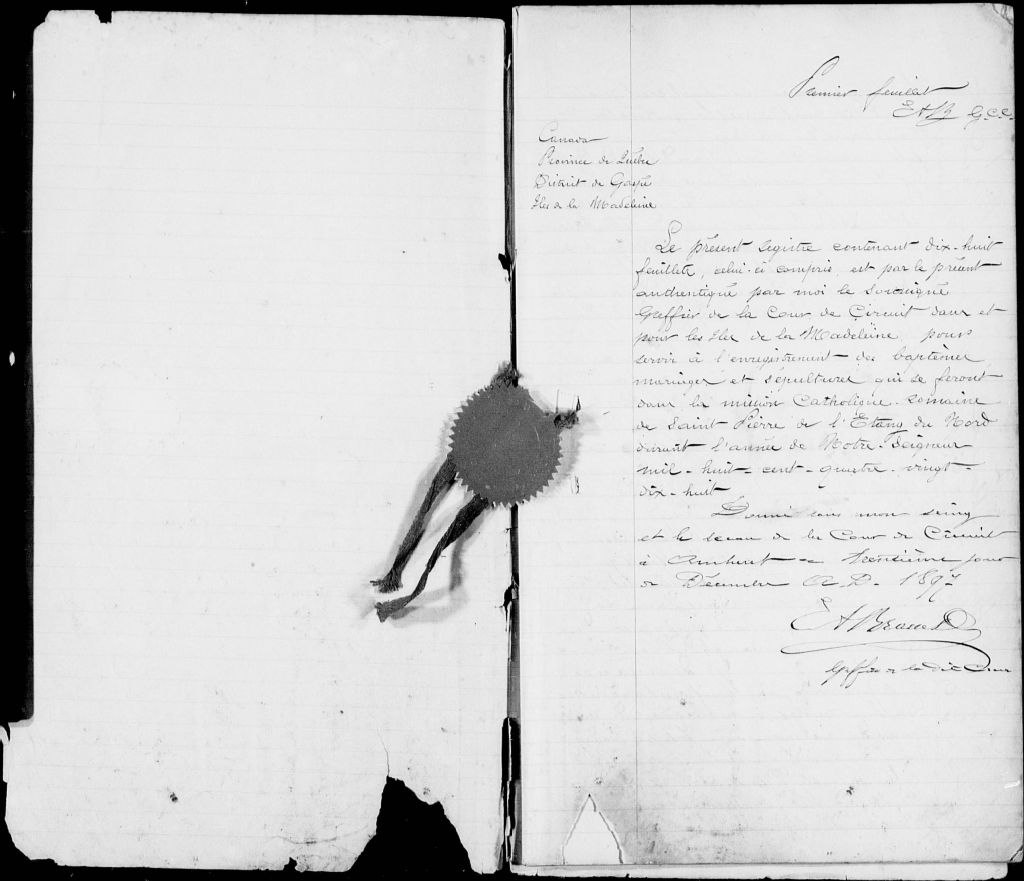 Premier feuillet
EAB G.C.C.
Canada
Province de Québec
District de Gaspé
Iles de la Madeleine
Le présent registre contenant dix-huit
feuillets, celui-ci compris, est par le présent
authentiqué par moi le soussigné
Greffier de la Cour de Circuit dans et
pour les Iles de la Madeleine pour
servir à l'enregistrement des baptêmes
mariages et sépultures qui se feront
dans la mission Catholique romaine
de Saint Pierre de l'Etang du Nord
durant l'année de Notre-Seigneur
mil-huit-cent-quatre-vingt-
dix-huit
Donné sous mon seing
et le sceau de la Cour de Circuit
à Amherst ce trentième jour
de Décembre A.D. 1897
Greffier de la dite Cour